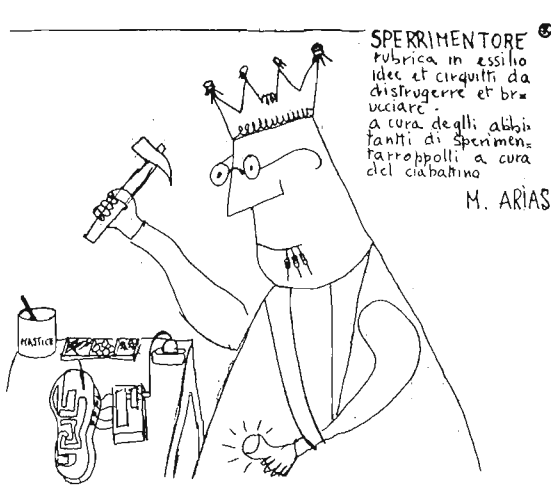 SPERRIMENTORE
rubrica in essilio
idee et cirquitti da
distrugerre et br=
ucciare -
a cura deglli abbi=
tantti di sperimen=
tarroppolli a cura
del ciabattino
M. ARIAS
MASTICE